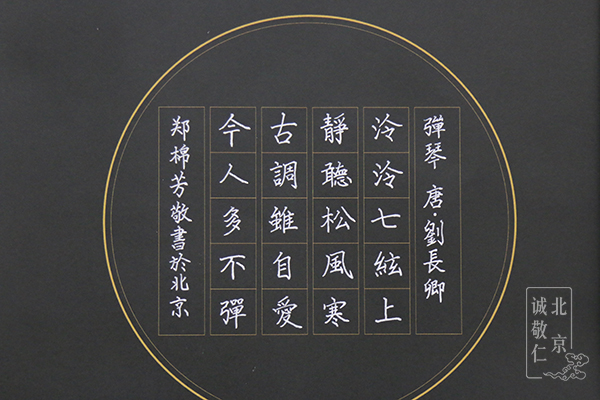 彈琴 唐·劉長卿
泠泠七絃上
靜聽松風寒
古調雖自愛
今人多不彈
郑棉芳敬書於北京
北京
诚敬仁